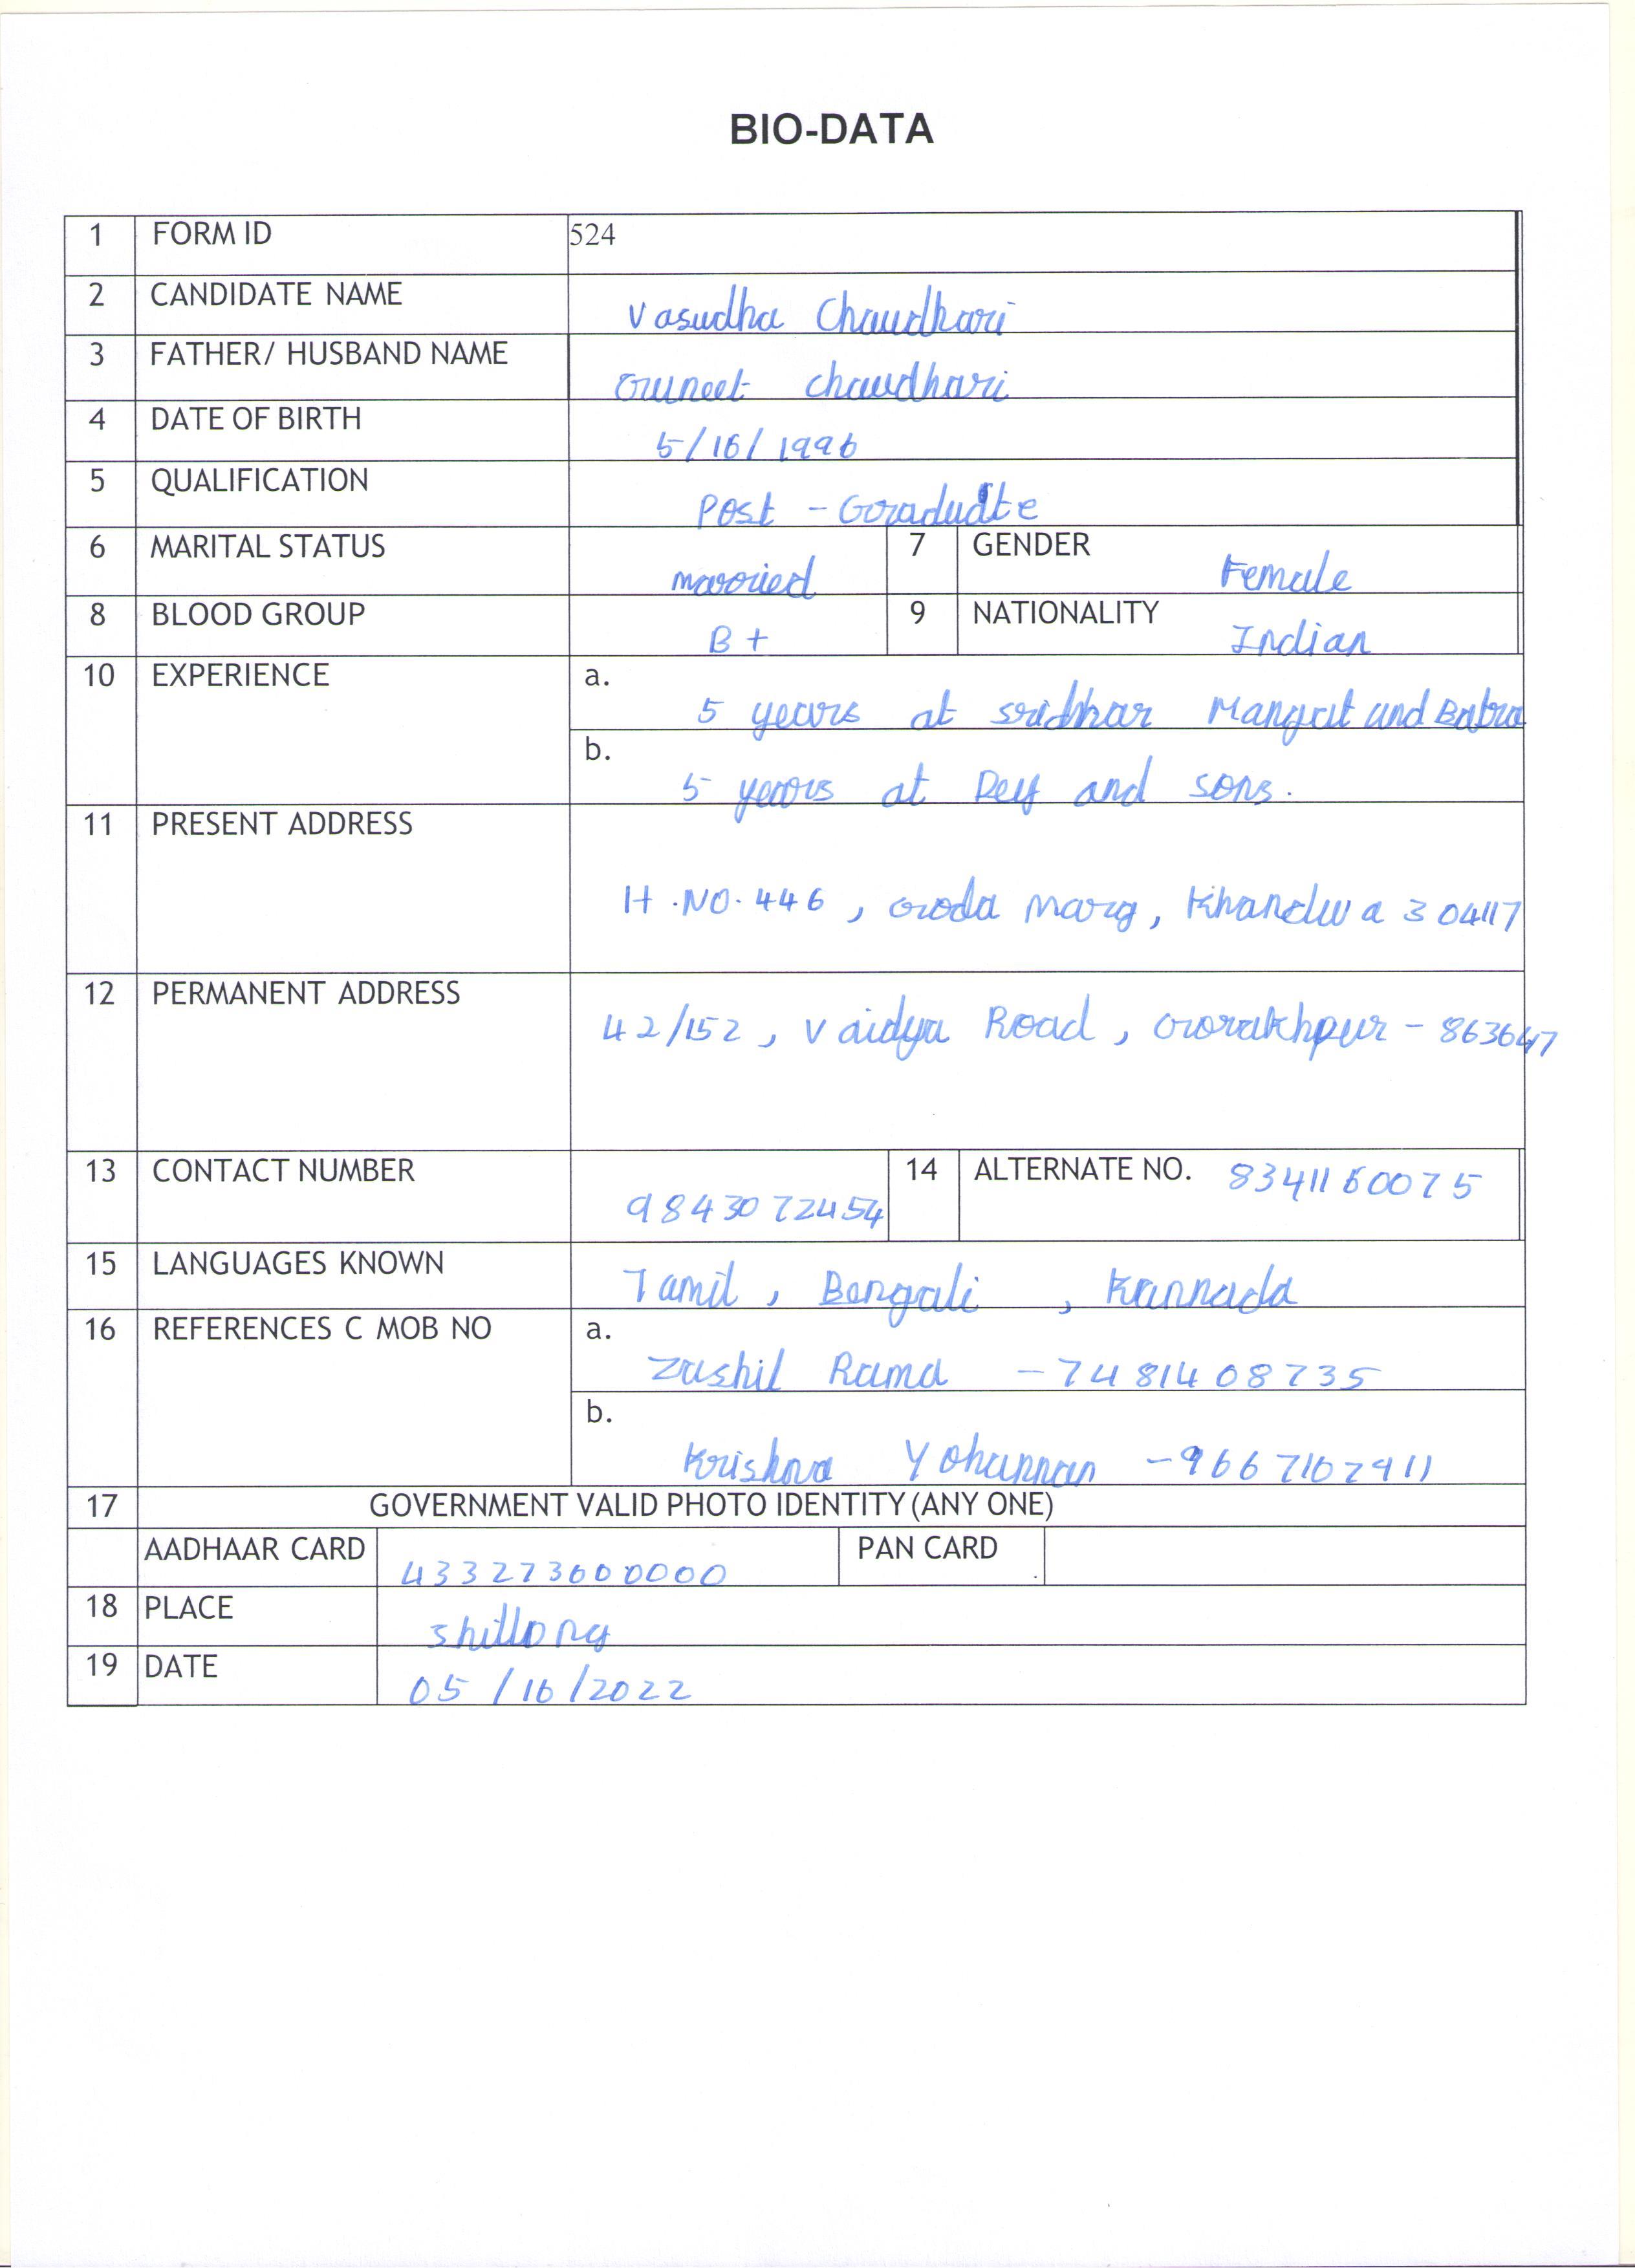 BIO-DATA
1 FORM ID 524
2 CANDIDATE NAME Vasudha Chaudhari
3 FATHER/ HUSBAND NAME Guneet Chaudhari
4 DATE OF BIRTH 5/16/1996
5 QUALIFICATION Post - Graduate
6 MARITAL STATUS married 7 GENDER Female
8 BLOOD GROUP B+ 9 NATIONALITY Indian
10 EXPERIENCE a. 5 years at Sridhar Mangat and
b. 5 years at and sons.
11 PRESENT ADDRESS H.NO.446, Goda Marg, Khandwa 304117
12 PERMANENT ADDRESS 42/152, Vaidya Road, Gorakhpur - 863647
13 CONTACT NUMBER 9843072454 14 ALTERNATE NO. 8341160075
15 LANGUAGES KNOWN Tamil, Bengali, Kannada
16 REFERENCES C MOB NO a. Zushil Rama - 7481408735
b. Krishna Yohannan - 9667167911
17 GOVERNMENT VALID PHOTO IDENTITY (ANY ONE)
AADHAAR CARD 433273600000 PAN CARD
18 PLACE Shillong
19 DATE 05/16/2022